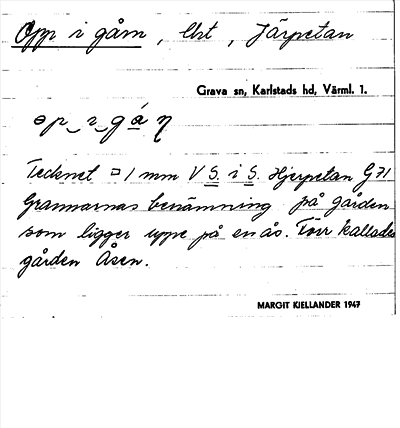 Opp i gåm, lht, Järpetan
Grava sn, Karlstads hd, Värml. 1.
Tecknet □ 1 mm V S. i S. Hjerpetan G71
Grannarnas benämning på gården
som ligger uppe på en ås. Förr kallades
gården Åsen.
MARGIT KJELLANDER 1947